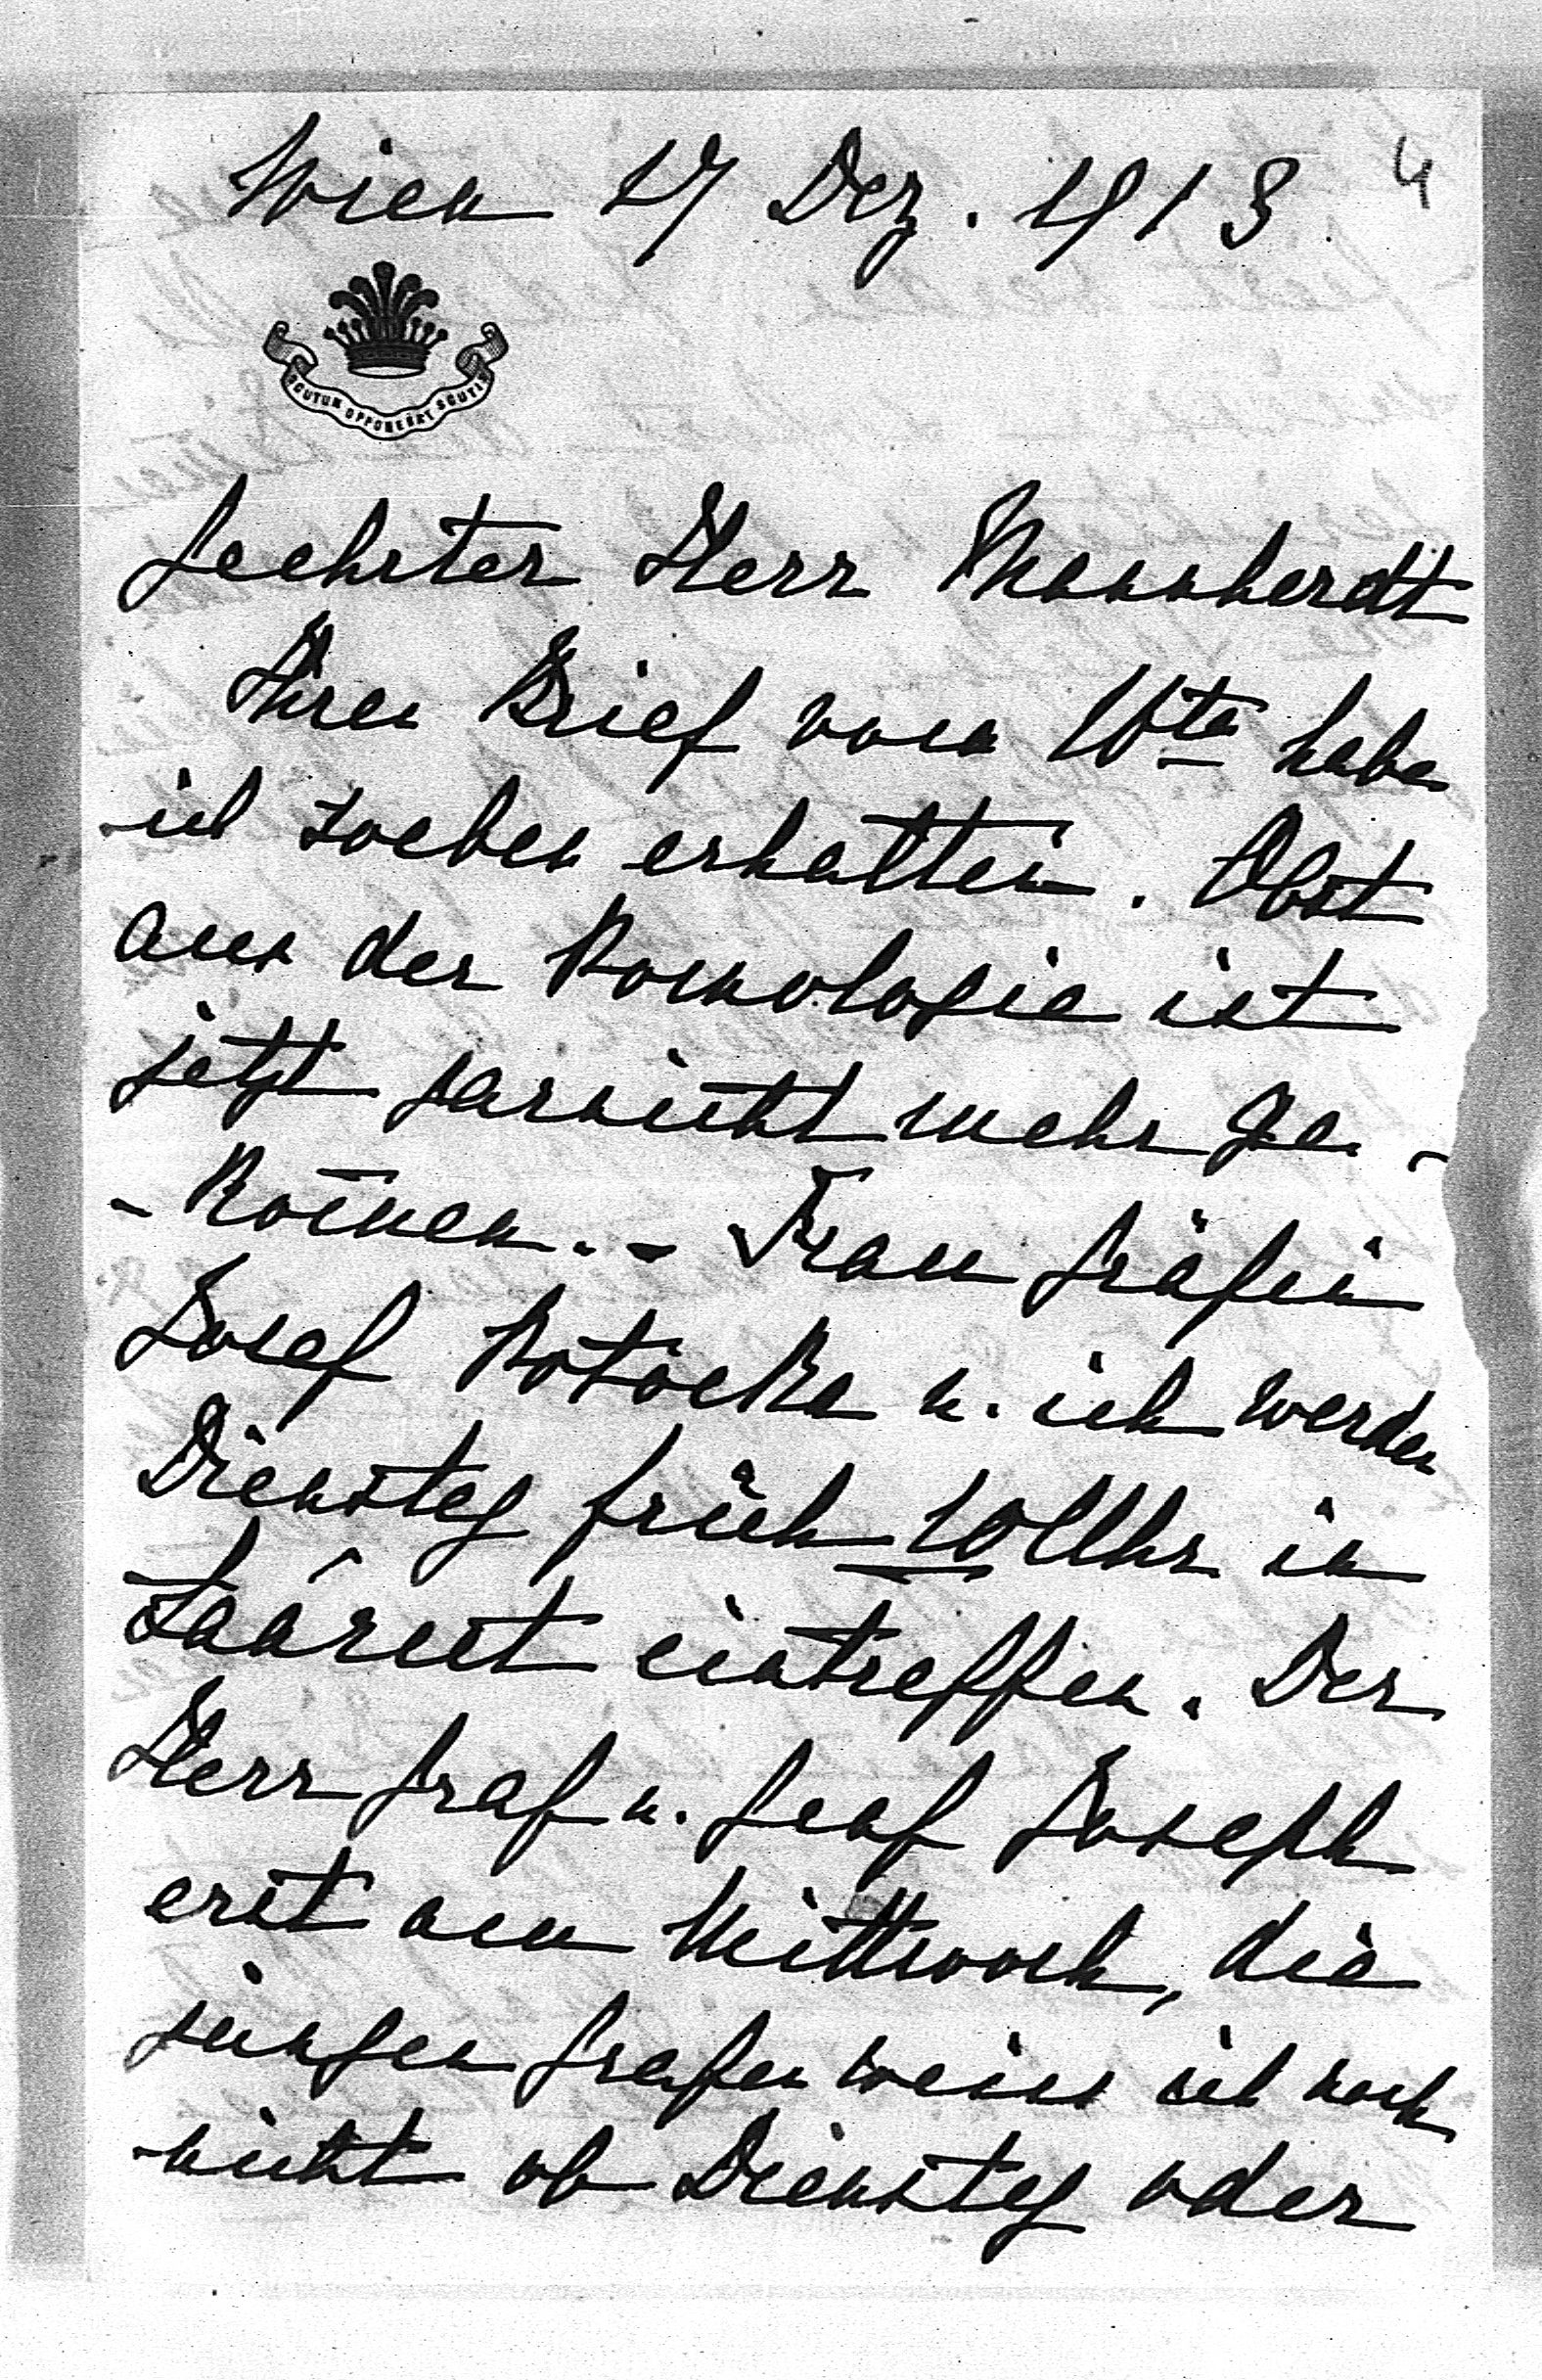 Wien 17 Dez. 1913
4
SCUTUM OPPONEBAT SCUTIS
Geehrter Herr Mannherdt
Ihren Brief vom 16ten habe
ich soeben erhalten. Obst
aus der Pomologie ist
jetzt garnicht mehr ge-
-kommen.- Frau Gräfin
Josef Potocka u. ich werden
Dienstag früh 10 Uhr in
Łańcut eintreffen. Der
Herr Graf u. Graf Joseph
erst am Mittwoch, die
jungen Grafen weiss ich noch
nicht ob Dienstag oder